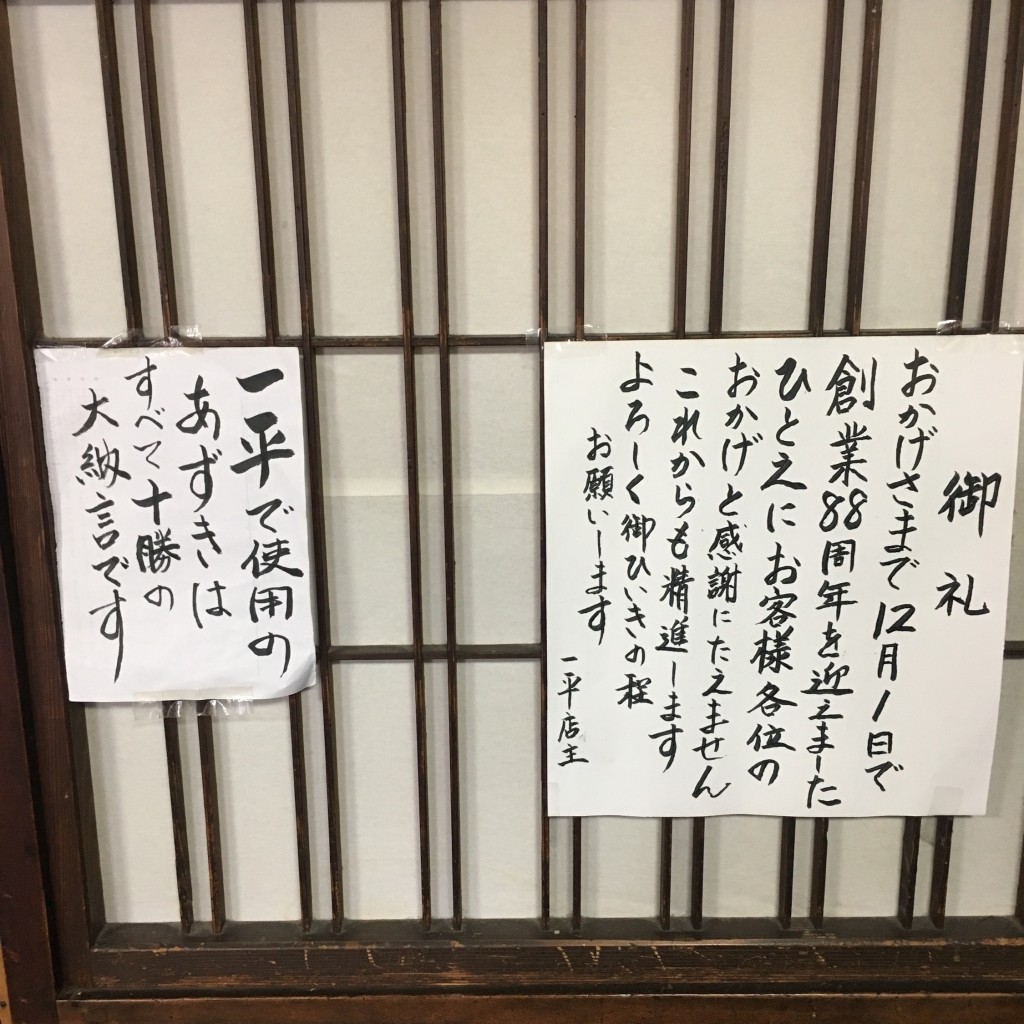 御礼
おかげさまで12月1日で
創業88周年を迎えました
ひとえにお客様各位の
おかげと感謝にたえません
これからも精進します
よろしく御ひいきの程
お願いします
一平店主
一平で使用の
あずきは
すべて十勝の
大納言です